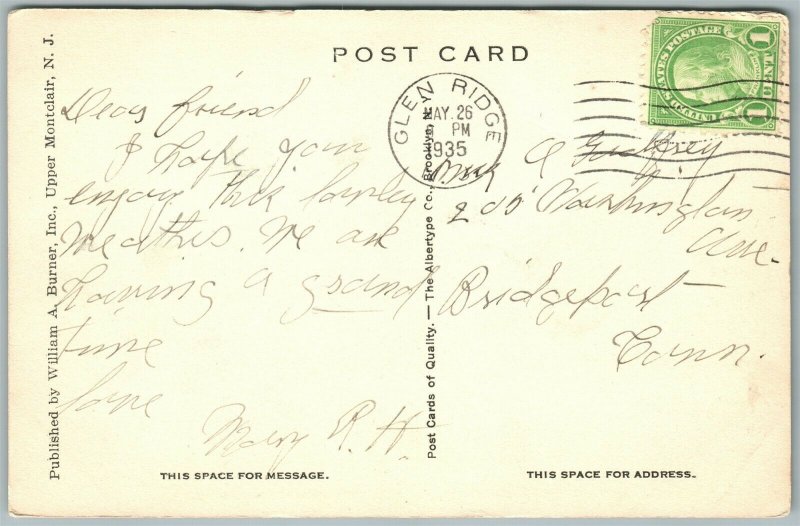 POST CARD
Published by William A. Burner, Inc., Upper Montclair, N. J.
Dear friend
I hope you
enjoy this lovley
weather. We are
having a grand
time
love
Mary R. H.
THIS SPACE FOR MESSAGE.
Post Cards of Quality. — The Albertype Co., Brooklyn, N.Y.
GLEN RIDGE
MAY. 26
PM
1935
STATES POSTAGE
1 1
A Godfrey
205 Washington
Ave
Bridgeport
Conn.
THIS SPACE FOR ADDRESS.